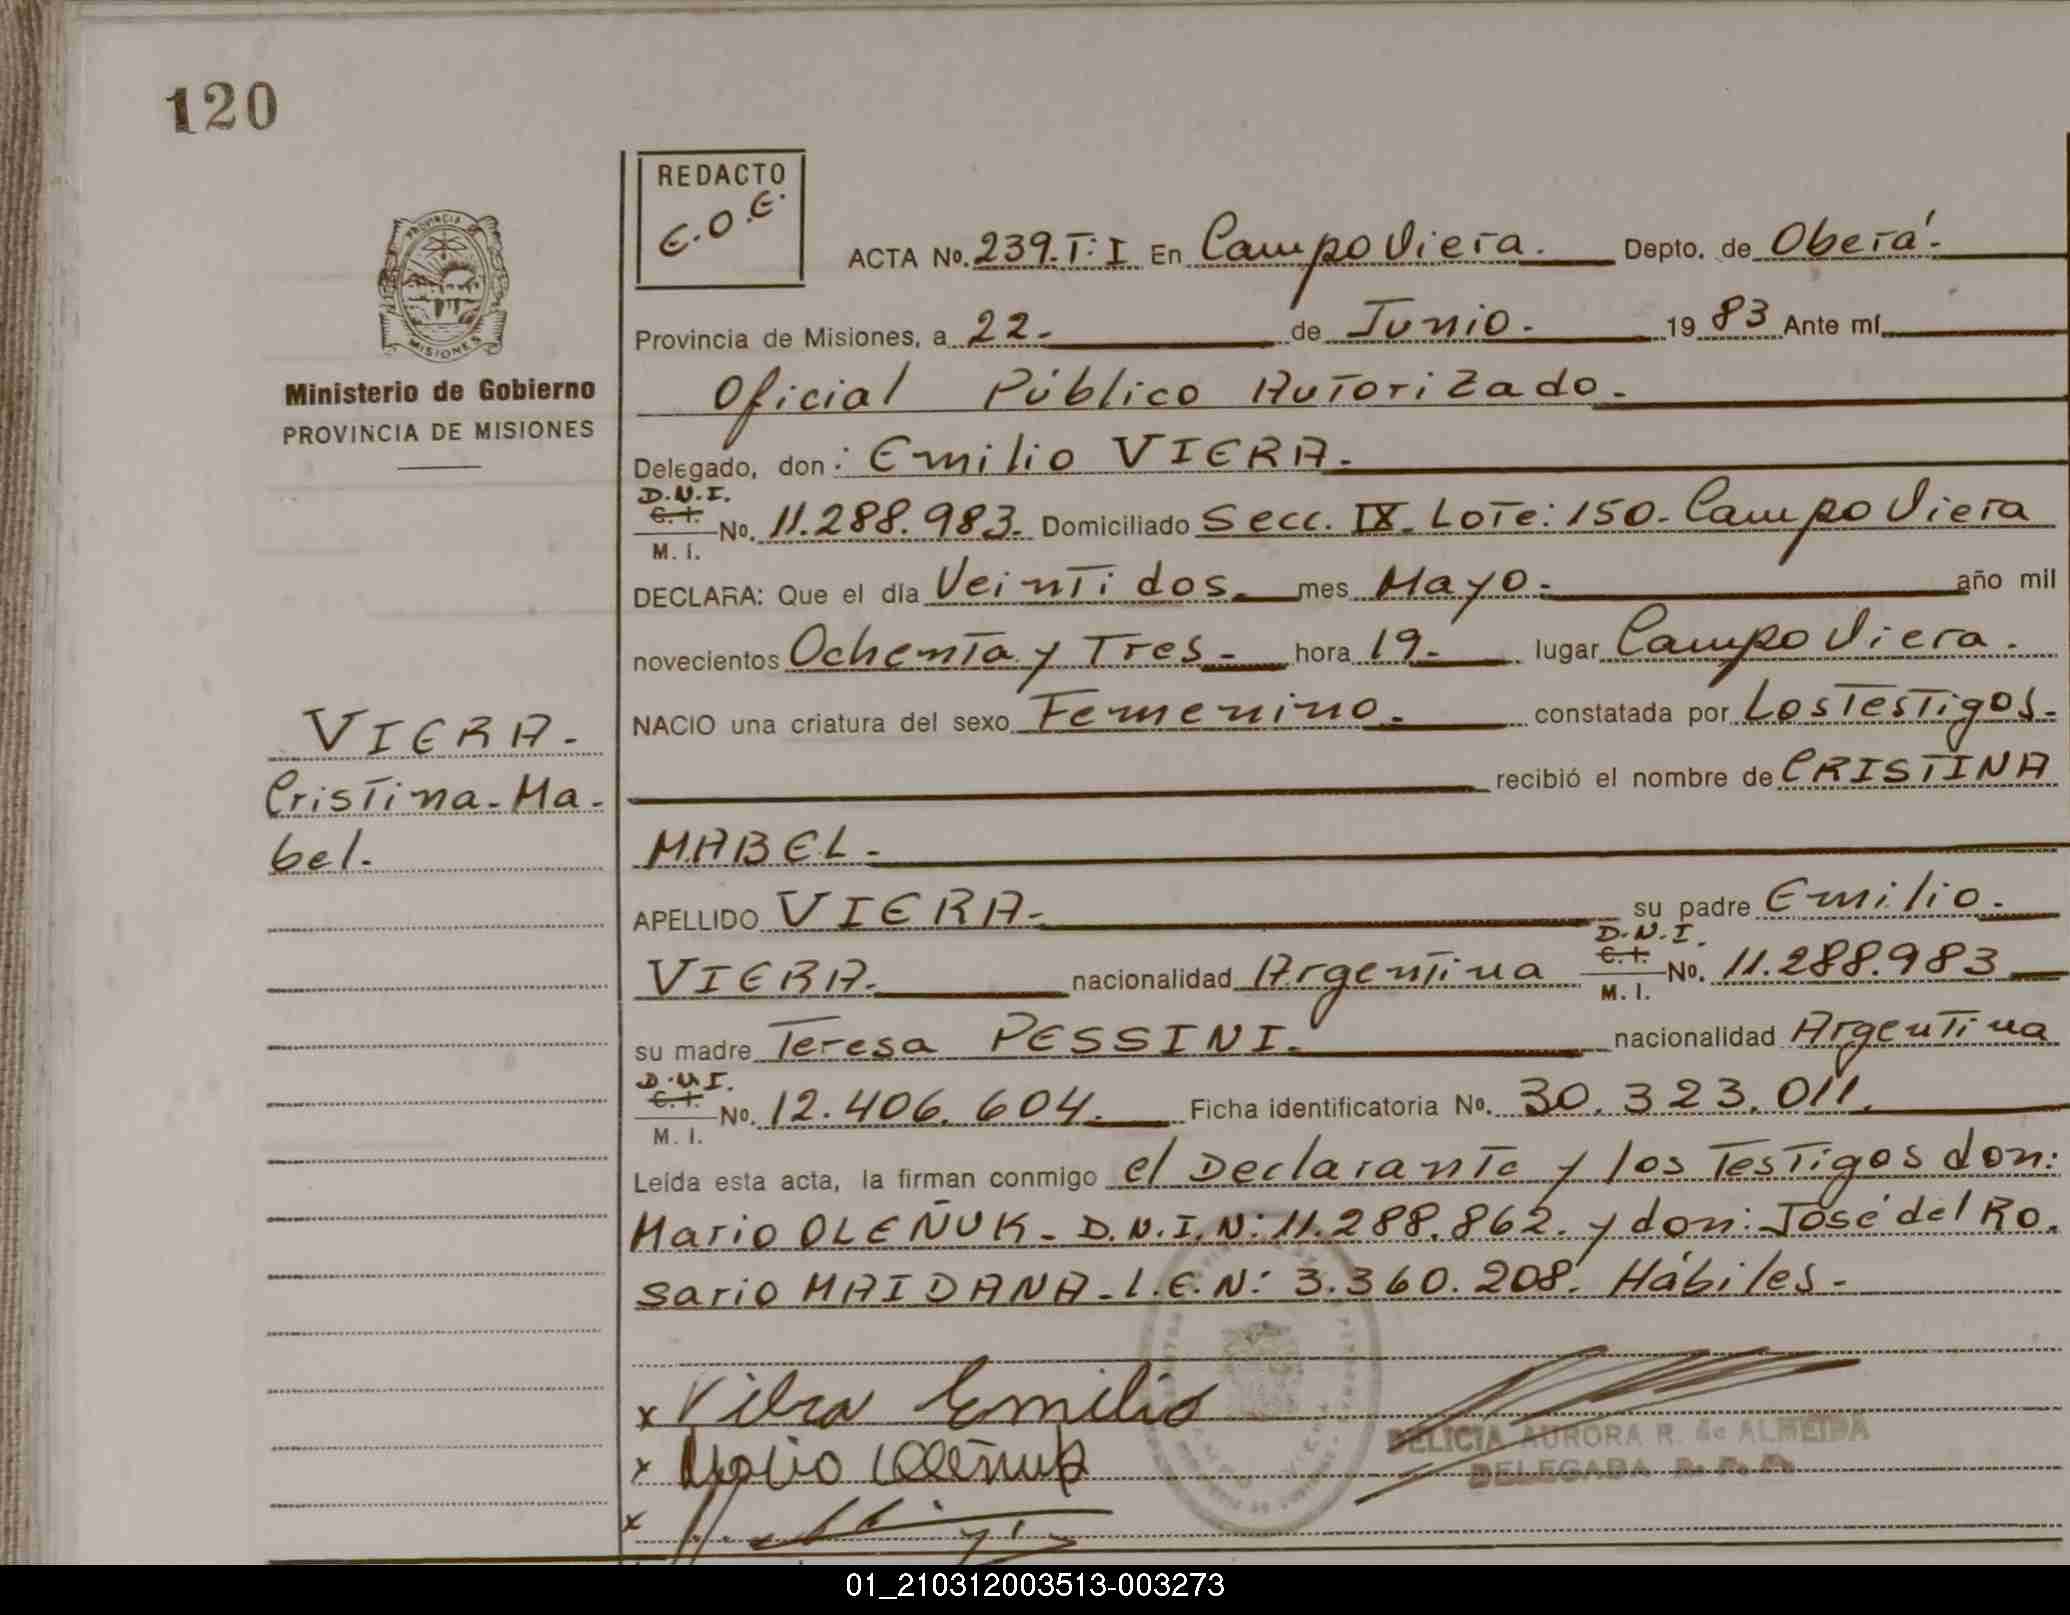 120
REDACTO
E.O.E.
PROVINCIA
MISIONES
Ministerio de Gobierno
PROVINCIA DE MISIONES
ACTA No. 239.T:I En Campo Viera. Depto. de Oberá.
Provincia de Misiones, a 22. de Junio. 19 83 Ante mí
Oficial Público Autorizado.
Delegado, don: Emilio VIERA.
D.N.I.
C.I.
M. I. No. 11.288.983. Domiciliado Secc. IX. Lote: 150. Campo Viera
DECLARA: Que el día Veinti dos. mes Mayo. año mil
novecientos Ochenta y Tres. hora 19. lugar Campo Viera.
NACIO una criatura del sexo Femenino. constatada por Los Testigos.
recibió el nombre de CRISTINA
MABEL.
VIERA.
Cristina-Ma-
bel.
APELLIDO VIERA. su padre Emilio.
VIERA. nacionalidad Argentina D.N.I. C.I. M. I. No. 11.288.983
su madre Teresa PESSINI. nacionalidad Argentina
D.N.I.
C.I.
M. I. No. 12.406.604. Ficha identificatoria No. 30.323.011.
Leída esta acta, la firman conmigo el Declarante y los Testigos don:
Mario OLEÑUK. D.N.I.N: 11.288.862. y don: José del Ro.
sario MAIDANA. L.E.N: 3.360.208. Hábiles.
x Viera Emilio
x Mario Oleñuk
x
DELICIA AURORA R. de ALMEIDA
DELEGADA R. P. P.
01_210312003513-003273